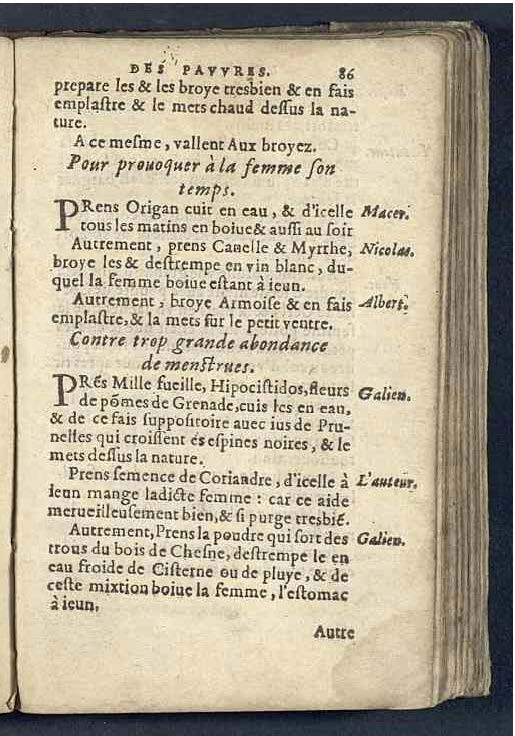 DES PAVVRES. 86
prepare les & les broye tresbien & en fais
emplaſtre & le mets chaud deſſus la na-
ture.
A ce meſme, vallent Aux broyez.
Pour prouoquer à la femme ſon
temps.
PRens Origan cuit en eau, & d'icelle Macer.
tous les matins en boiue & auſſi au ſoir
Autrement, prens Canelle & Myrrhe, Nicolas.
broye les & deſtrempe en vin blanc, du-
quel la femme boiue eſtant à ieun.
Autrement, broye Armoiſe & en fais Albert.
emplaſtre, & la mets ſur le petit ventre.
Contre trop grande abondance
de menſtrues.
PRés Mille fueille, Hipociſtidos, fleurs Galien.
de põmes de Grenade, cuis les en eau,
& de ce fais ſuppoſitoire auec ius de Pru-
nelles qui croiſſent és eſpines noires, & le
mets deſſus la nature.
Prens ſemence de Coriandre, d'icelle à L'auteur.
ieun mange ladicte femme : car ce aide
merueilleuſement bien, & ſi purge tresbié.
Autrement, Prens la poudre qui ſort des Galien.
trous du bois de Cheſne, deſtrempe le en
eau froide de Ciſterne ou de pluye, & de
ceſte mixtion boiue la femme, l'eſtomac
à ieun.
Autre